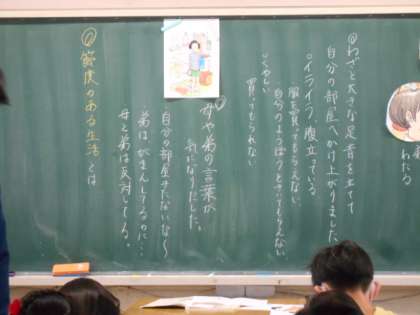 わたる
◎わざと大きな足音を立てて
自分の部屋へかけ上がりました。
○イライラ、腹立っている
服を買ってもらえない
自分のようぼうをきいてもらえない
○くやしい
買ってもらえない
母や弟の言葉が
気になりだした。
自分の部屋きたないな〜
弟はがまんしてるのに…
母と弟は反対してる。
◎節度のある生活とは